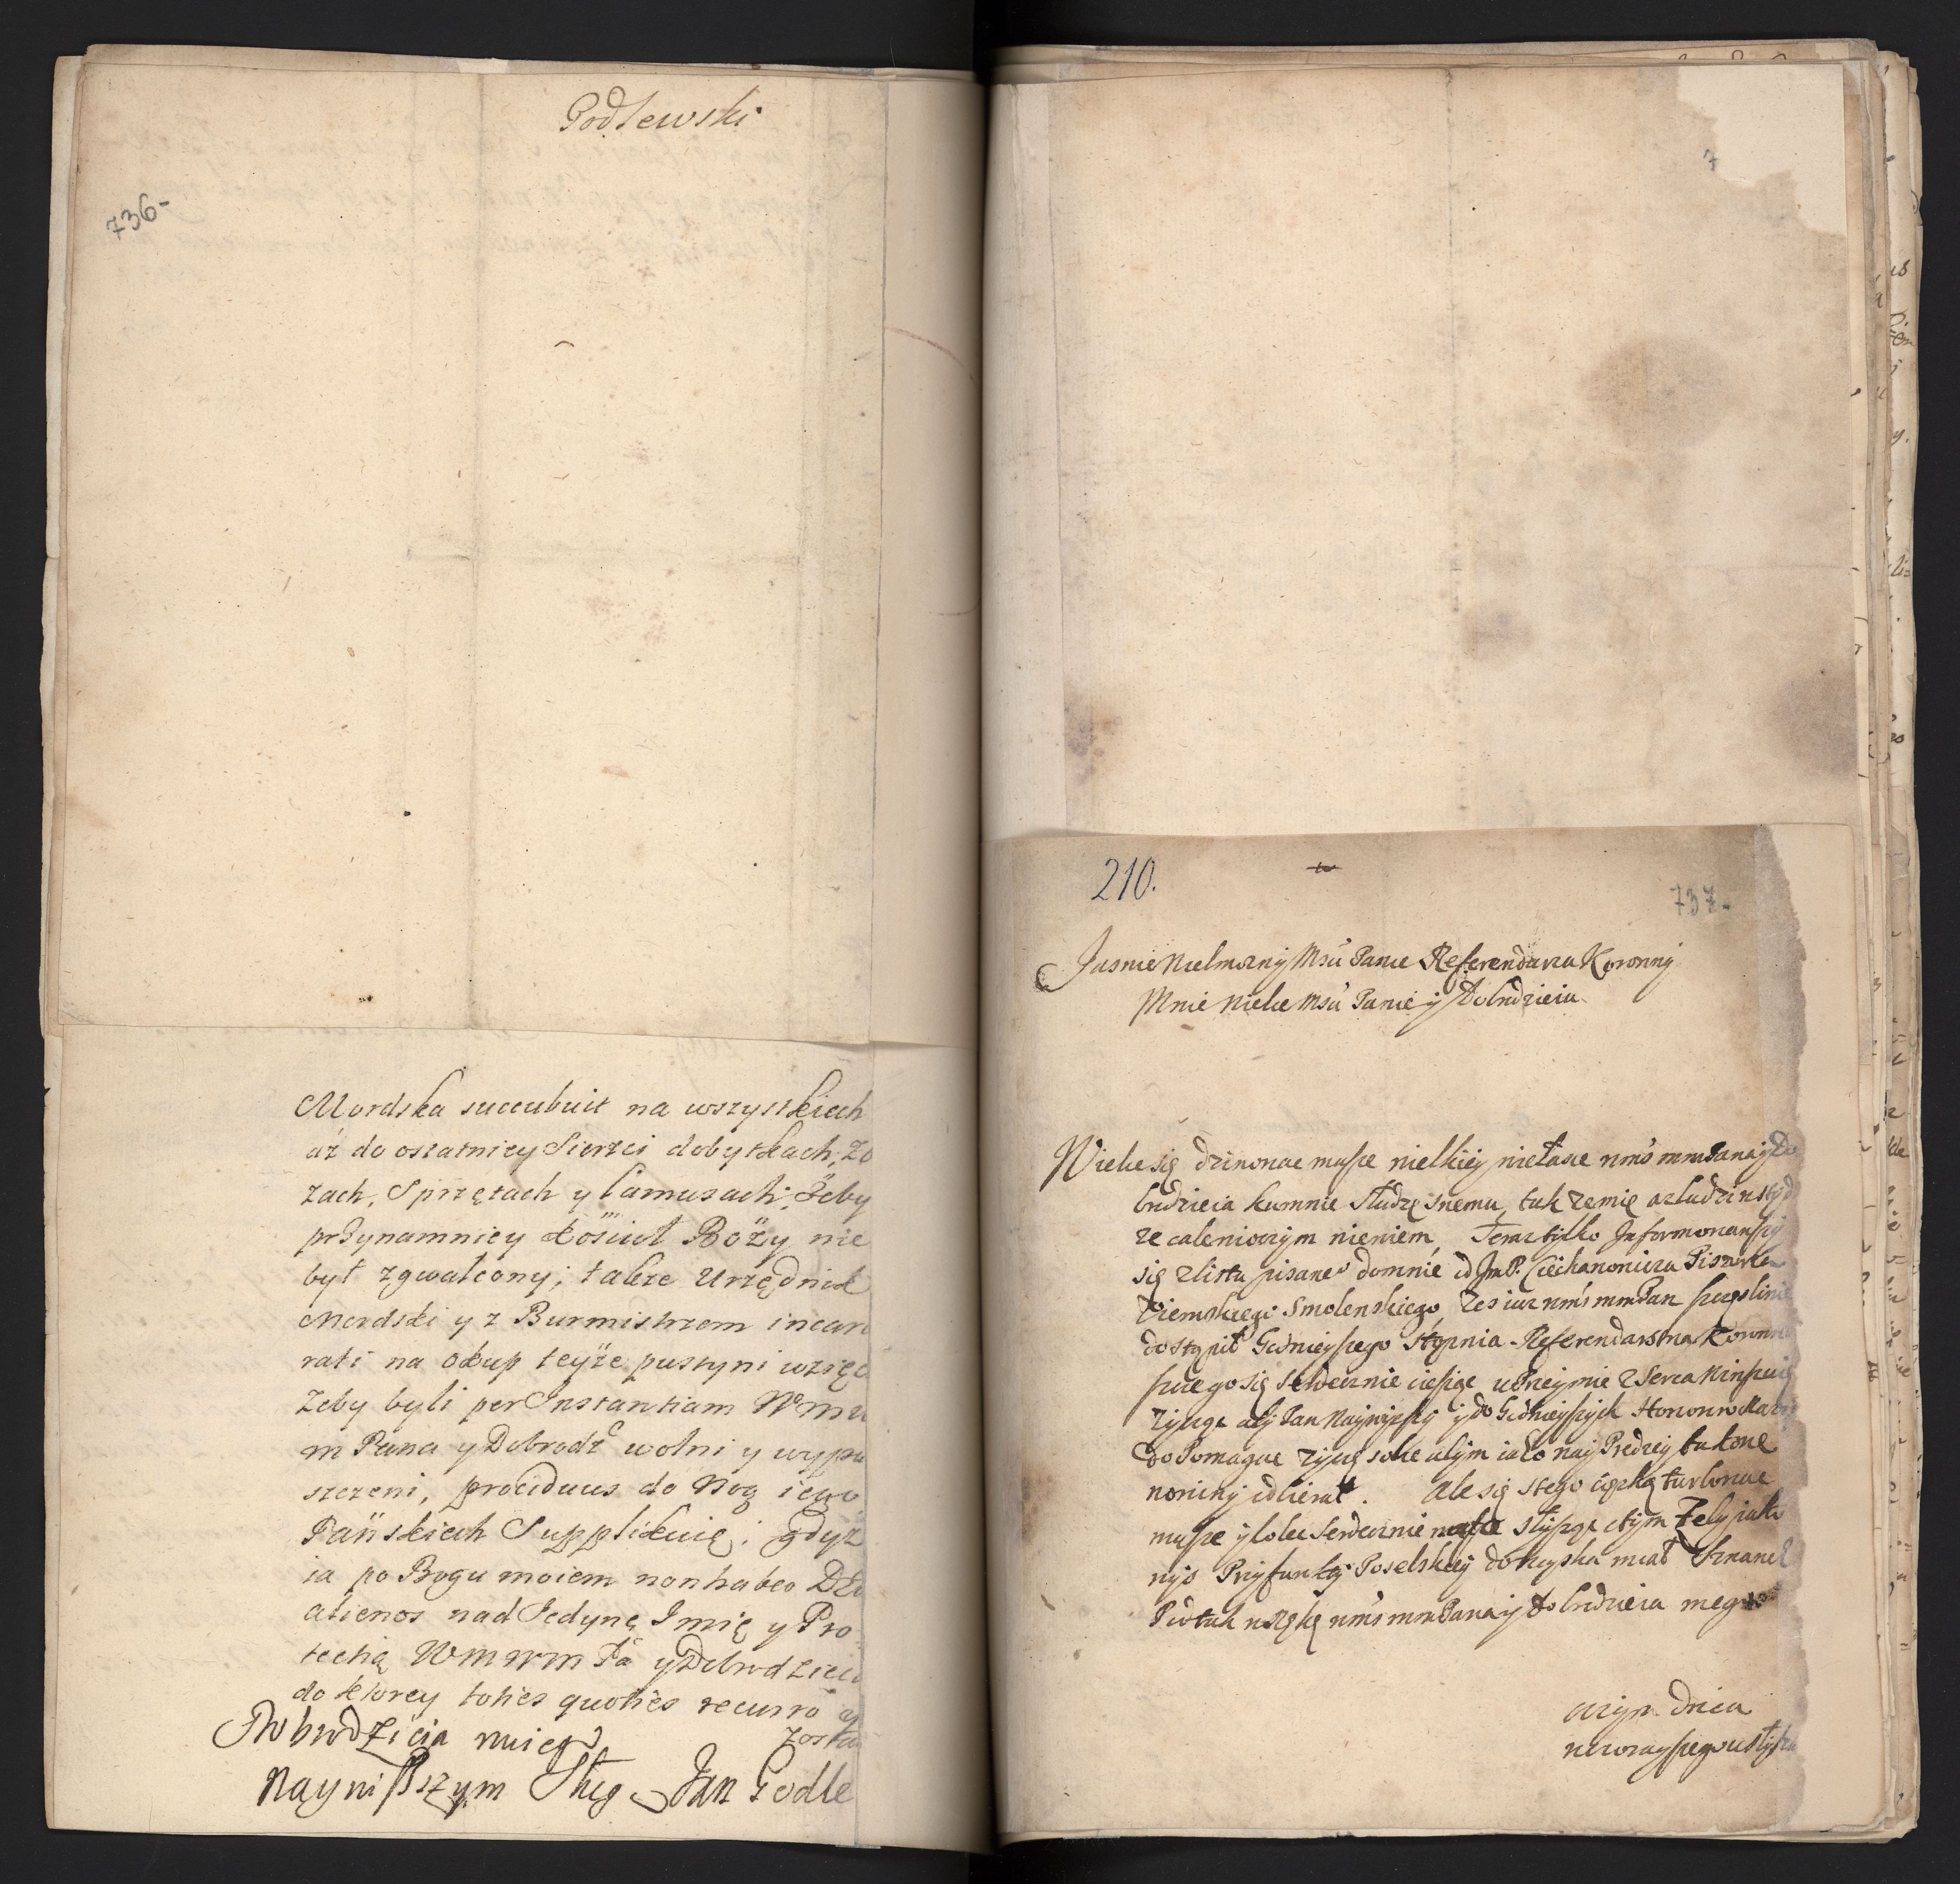 Podlewski
736-
Mordska succubuit na wszystkiech
aż do ostatniey Sierżci dobytkach, zo
zach, Sprzętach y lamusach; Żeby
przynamniey kościoł Boży nie
był zgwałcony; także Urzędnik
Mordski y z Burmistrzem incar
rati na okup teyże pustyni wzięc
Zeby byli per Instantiam Wmu
m Pana y Dobrodź wolni y wypu
szczeni, prociduus do Nog iego
Pańskiech Supplikuię; gdyż
ia po Bogu moiem non habeo
alienos nad Jedynę Imię y Pro
tectią WMWM Pa y Dobrodzieia
do ktorey toties quoties recurro
Dobrodzieia mieg Zosta
Nayniszszym Sług Jan Podle
7
210.
737-
Jasnie Wielmozny Msci Panie Referendarzu Koronny
Mnie Wielce Msci Panie y Dobrodzieiu
Wielce się dziwowac muszę wielkiey niełasce wmś mmPana y Do
brodzieia kumnie Słudze swemu, tak ze mię
Teraz tylko Informowawszy
się z listu pisanego domnie od JmP. Ciechanowicza Pisarza
Ziemskiego Smolenskiego, zes iuz wmś mmPan szczęsliwie
dostąpił Godnieyszego stopnia Referendarstwa Koronne
szczego się serdecznie ciesząc uprzeymie z Serca Winszuię
zycząc aby Pan Naywyzszy y do Godnieyszych Honorow
do Pomagac zyczę sobie abym iako nay Prędzey takowe
nowiny odbierał. Ale się stego cięszko turbowac
muszę y bolec Serdecznie słysząc otym Zeby iako
Przy funkcy Poselskiey
mmPana y Dobrodzieia mego